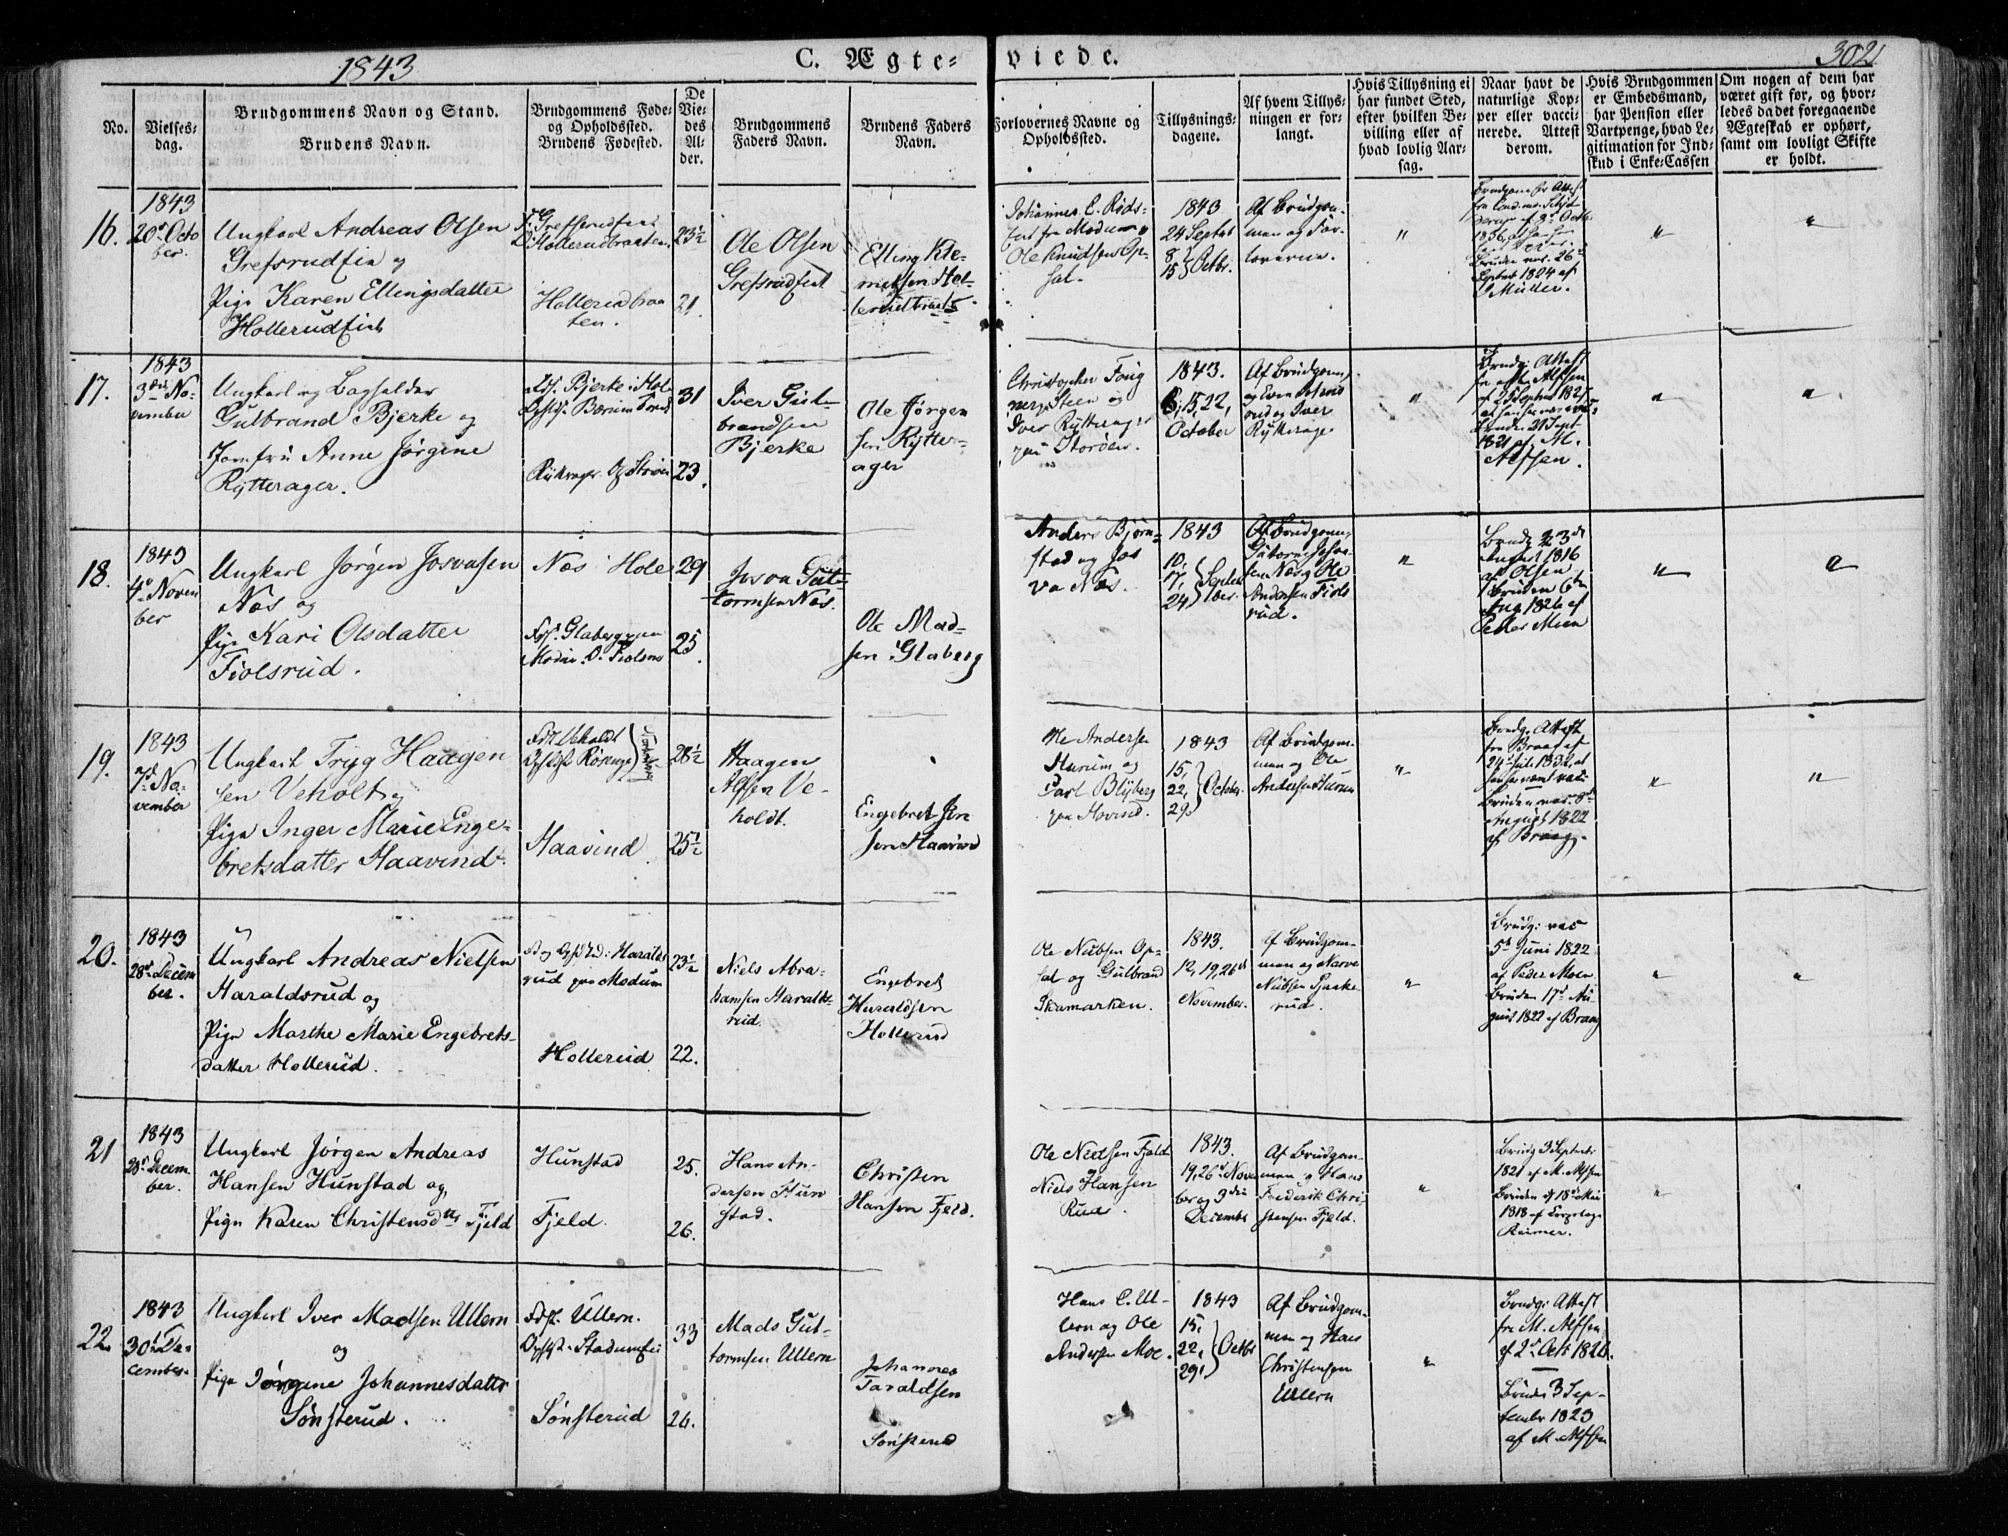 1843
C. Ægte-
viede.
302
No.
Vielses-
dag.
Brudgommens Navn og Stand.
Brudens Navn.
Brudgommens Føde-
og Opholdssted.
Brudens Fødested.
De
Vie-
des
Al-
der.
Brudgommens
Faders Navn.
Brudens Faders
Navn.
Forlovernes Navne og
Opholdssted.
Tillysnings-
dagene.
Af hvem Tillys-
ningen er for-
langt.
Hvis Tillysning ei
har fundet Sted,
efter hvilken Be-
villing eller af
hvad lovlig Aar-
sag.
Naar havt de
naturlige Kop-
per eller vacci-
nerede. Attest
derom.
Hvis Brudgommen
er Embedsmand,
har Pension eller
Vartpenge, hvad Le-
gitimation for Ind-
skud i Enke-Cassen
Om nogen af dem har
været gift før, og hvor-
ledes da det foregaaende
Ægteskab er ophørt,
samt om lovligt Skifte
er holdt.
16.
1843
20de Octo
ber.
Ungkarl Andreas Olsen
Grefsrudeie og
Pige Karen Ellingsdatter
Hollerudeie
Hollerudbraa
ten.
23½
21.
Ole Olsen
Elling Kle-
metsen Hol-
Johannes E. Røds-
Ole Knudsen Op-
sal.
1843
24 Septbr
8
15 } Octbr.
Af Brudgom-
men og For-
loverne.
Bruden vac. 26
Septbr 1824 af
Müller.
17.
1843
3die No-
vember
Ungkarl og
Gulbrand Bjerke og
Jomfru Anne Jørgine
Rytterager.
Fds. Bjerke i Hole
31
23.
Iver Gul-
brandsen
Bjerke
Ole Jørgen
sen Rytter-
ager
Christopher
Steen og
Iver Rytterager
paa Storøen.
1843.
8, 15, 22,
October
Af Brudgom,
og Iver
Rytterager
Brudg: Attest
1821 af M.
Alfsen.
18.
1843
4de Novem
ber
Ungkarl Jørgen Josvasen
Næs og
Pige Kari Olsdatter
Fiolsrud.
Næs Hole
Fds. Glaberg paa
Modum. O. Fiolsrud
29
25.
Josva Gut-
tormsen Næs.
Ole Mad-
sen Glaberg
Anders Bjørn-
stad og Jos
va Næs.
1843
10,
17,
24 } Septem
ber.
Af Brudgom,
Guttorm Josva-
sen Næs og Ole
Andersen Fiols
rud.
Brudg 23de
August 1816
af Olsen
Bruden 6te
Aug 1826 af
Peder Moen
19.
1843
7de No-
vember
Ungkarl Tryg Haagen
sen Veholt og
Pige Inger Marie Enge-
bretsdatter Haavind.
Fdt Veholdt
Haavind.
28½
25½
Haagen
Alfsen Ve-
holdt.
Engebret Jen
sen Haavind
Ole Andersen
Hurum og
Carl Blyberg
paa Hovind.
1843
15,
22,
29. } October
Af Brudgom-
men og Ole
Andersen Hurum
Brudg: Attest
fra Braag af
Bruden vac. 8de
August 1822
af Braag.
20.
1843
28de Decem
ber.
Ungkarl Andreas Nielsen
Haraldsrud og
Pige Marthe Marie Engebrets-
datter Hollerud.
rud paa Modum
Hollerud
23½
22.
Niels Abra-
hamsen Haralds-
rud.
Engebret
Haraldsen
Hollerud
Ole Nielsen Op-
sal og Gulbrand
Skamarken.
1843.
12, 19, 26de
November.
Af Brudgom-
men og Narve
Nielsen
rud.
Brudg: vac
5te Juni 1822
af Peder Moen
Bruden 17de Au-
gust 1822 af Braag
21
1843
28de Decem-
ber.
Ungkarl Jørgen Andreas
Hansen Hunstad og
Pige Karen Christensdtr Fjeld
Hunstad
Fjeld.
25.
26.
Hans An-
dersen Hun
stad.
Christen
Hansen Fjeld.
Ole Nielsen Fjeld
Niels Hansen
Rud.
1843.
19, 26de Novem
ber og 3die
December
Af Brudgom-
men og Hans
Frederik Chri-
stensen Fjeld.
Brudg 3 Septembr
1821 af M. Alfsen
Bruden af 18de Mai
1818 af
22.
1843
30te De-
cember.
Ungkarl Iver Madsen Ullern
og
Pige Jørgine Johannesdatter
Sønsterud.
Fdst. Ullern.
Sønsterud
33
26.
Mads Gut-
tormsen Ullern
Johannes
Taraldsen
Sønsterud
Hans C. Ul-
lern og Ole
Andersen Moe.
1843
15,
22,
29, } Octbr
Af Brudgom-
men og Hans
Christensen
Ullern
Brudg: Attest
fra M. Alfsen
af 2de Octb 1826.
Bruden 3 Sep-
tember 1823
af M. Alfsen